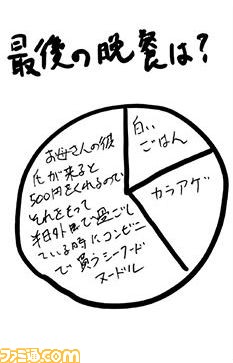 最後の晩餐は?
白い
ごはん
カラアゲ
お母さんの彼
氏が来ると
500円をくれるので
それをもって
半日外で過ごし
ている時にコンビニ
で買うシーフード
ヌードル
ファミ通.com